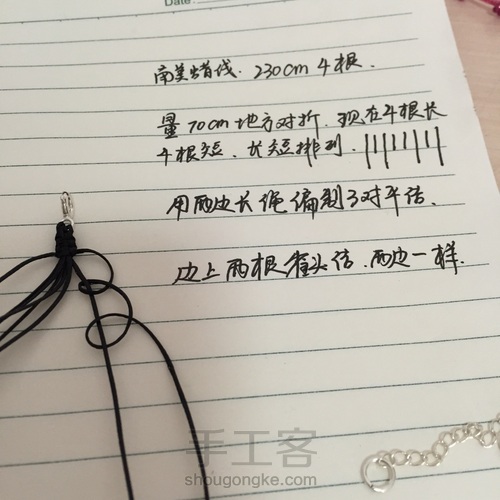 Date:
南美蜡线. 230cm 4根.
量70cm地方对折. 现在4根长
4根短. 长短排列.
用两边长绳编制3对平结.
边上两根雀头结. 两边一样.
手工客
shougongke.com